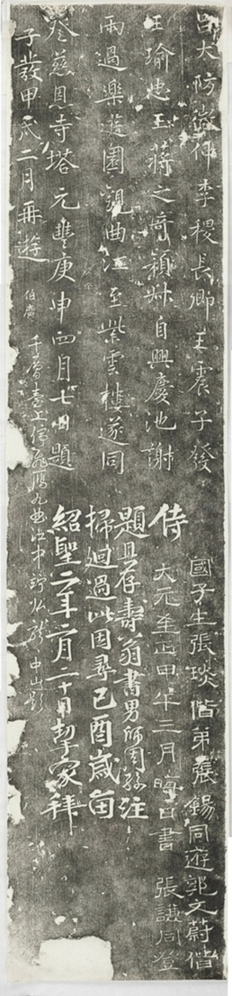 呂大防微仲李稷長卿王震子發
王瑜忠玉蔣之奇穎叔自興慶池謝
雨過樂遊園觀曲江至紫雲樓遂同
登慈恩寺塔元豐庚申四月七日題
子發甲戌二月再遊
國子生張琰偕弟張錫同遊郭文蔚偕
大元至正甲午三月晦日書 張謙同登
侍
題且存壽翁書男師同孫注
掃迴過此因尋己酉歲留
紹聖二年二月二十日挈家拜